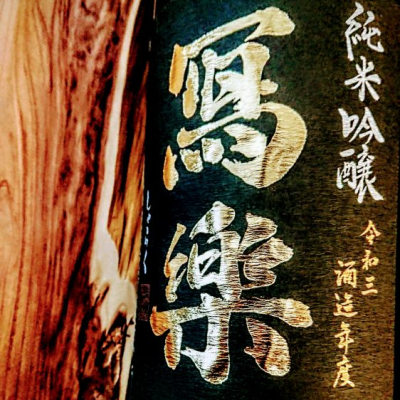 純米吟醸
令和三酒造年度
寫楽
しゃらく